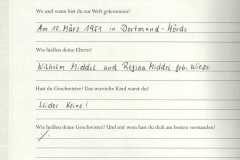 Wo und wann bist du zur Welt gekommen?
Am 12. März 1951 in Dortmund-Hörde
Wie heißen deine Eltern?
Wilhelm Middel und Regina Middel geb. Wiese
Hast du Geschwister? Das wievielte Kind warst du?
Leider keine!
Wie heißen deine Geschwister? Und mit wem hast du dich am besten verstanden?